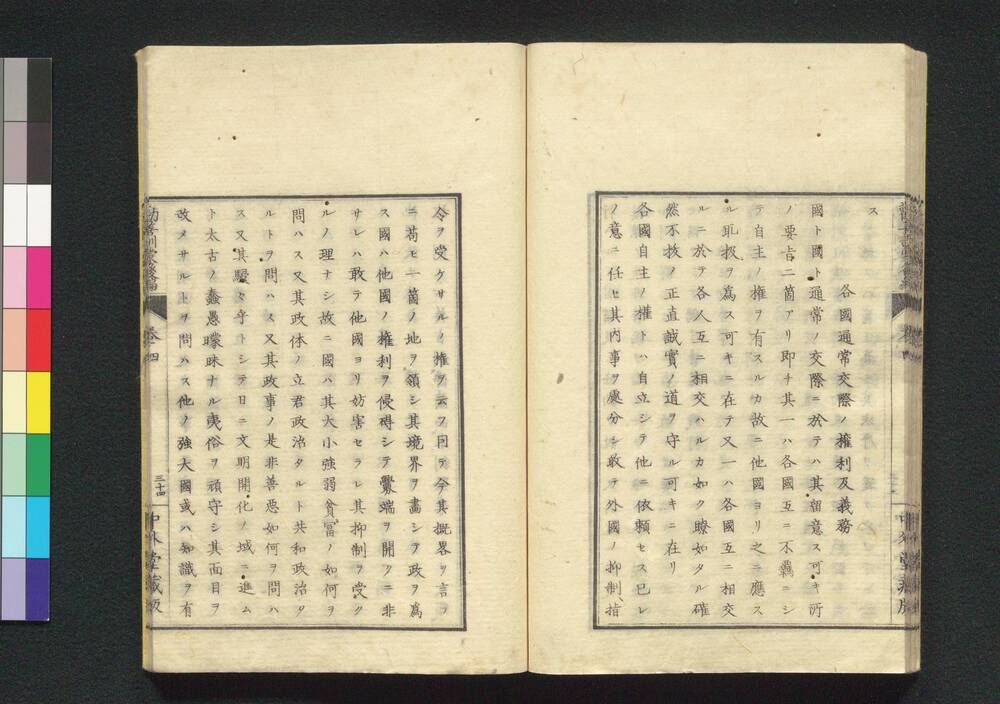 ス
各國通常交際ノ權利及義務
國ト國ト通常ノ交際ニ於テハ其留意ス可キ所
ノ要旨二箇アリ即チ其一ハ各國互ニ不羈ニシ
テ自主ノ權ヲ有スルカ故ニ他國ヨリ之ニ應ス
ル處ヲ爲ス可キニ在テ又一ハ各國互ニ相交
ルニ於テ各人互ニ相交ハルカ如ク瞭如タル確
然不拔ノ正直誠實ノ道ヲ守ル可キニ在リ
各國自主ノ權トハ自立シテ他ニ依賴セス已レ
ノ意ニ任セ其內事ヲ處分シ敢テ外國ノ抑制指
令ヲ受クサルノ權ヲ云フ因テ今其概畧ヲ言フ
ニ苟モ一箇ノ地ヲ領シ其境界ヲ畫シテ政ヲ爲
ス國ハ他國ノ權利ヲ侵碍シテ釁端ヲ開クニ非
サレハ敢テ他國ヨリ妨害セラレ其抑制ヲ受ク
ルノ理ナシ故ニ國ハ其大小強弱貧冨ノ如何ヲ
問ハス又其政体ノ立君政治タルト共和政治タ
ルトヲ問ハス又其政事ノ是非善惡如何ヲ問ハ
ス又其駸々乎トシテ日ニ文明開化ノ域ニ進ム
ト太古ノ蠢愚矇昧ナル夷俗ヲ頑守シ其面目ヲ
改メサルトヲ問ハス他ノ強大國或ハ知識ヲ有
勸善訓蒙後編
卷四
三十四
中外堂藏版